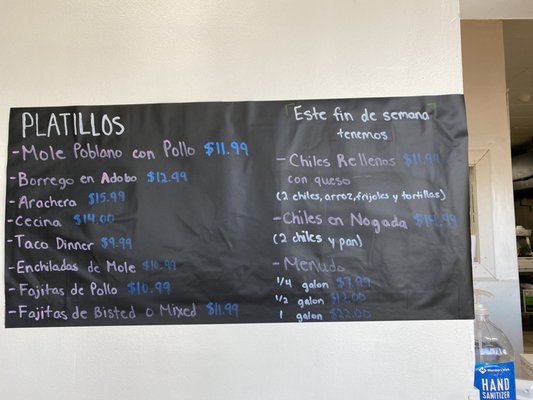 PLATILLOS
- Mole Poblano con Pollo $11.99
- Borrego en Adobo $12.99
- Arachera $15.99
- Cecina $14.00
- Taco Dinner $9.99
- Enchiladas de Mole $10.99
- Fajitas de Pollo $10.99
- Fajitas de Bisted o Mixed $11.99
Este fin de semana
tenemos
- Chiles Rellenos $11.99
con queso
(2 chiles, arroz, frijoles y tortillas)
- Chiles en Nogada $14.99
(2 chiles y pan)
- Menudo
1/4 galon $7.99
1/2 galon $12.00
1 galon $22.00
Member's Mark
HAND
SANITIZER